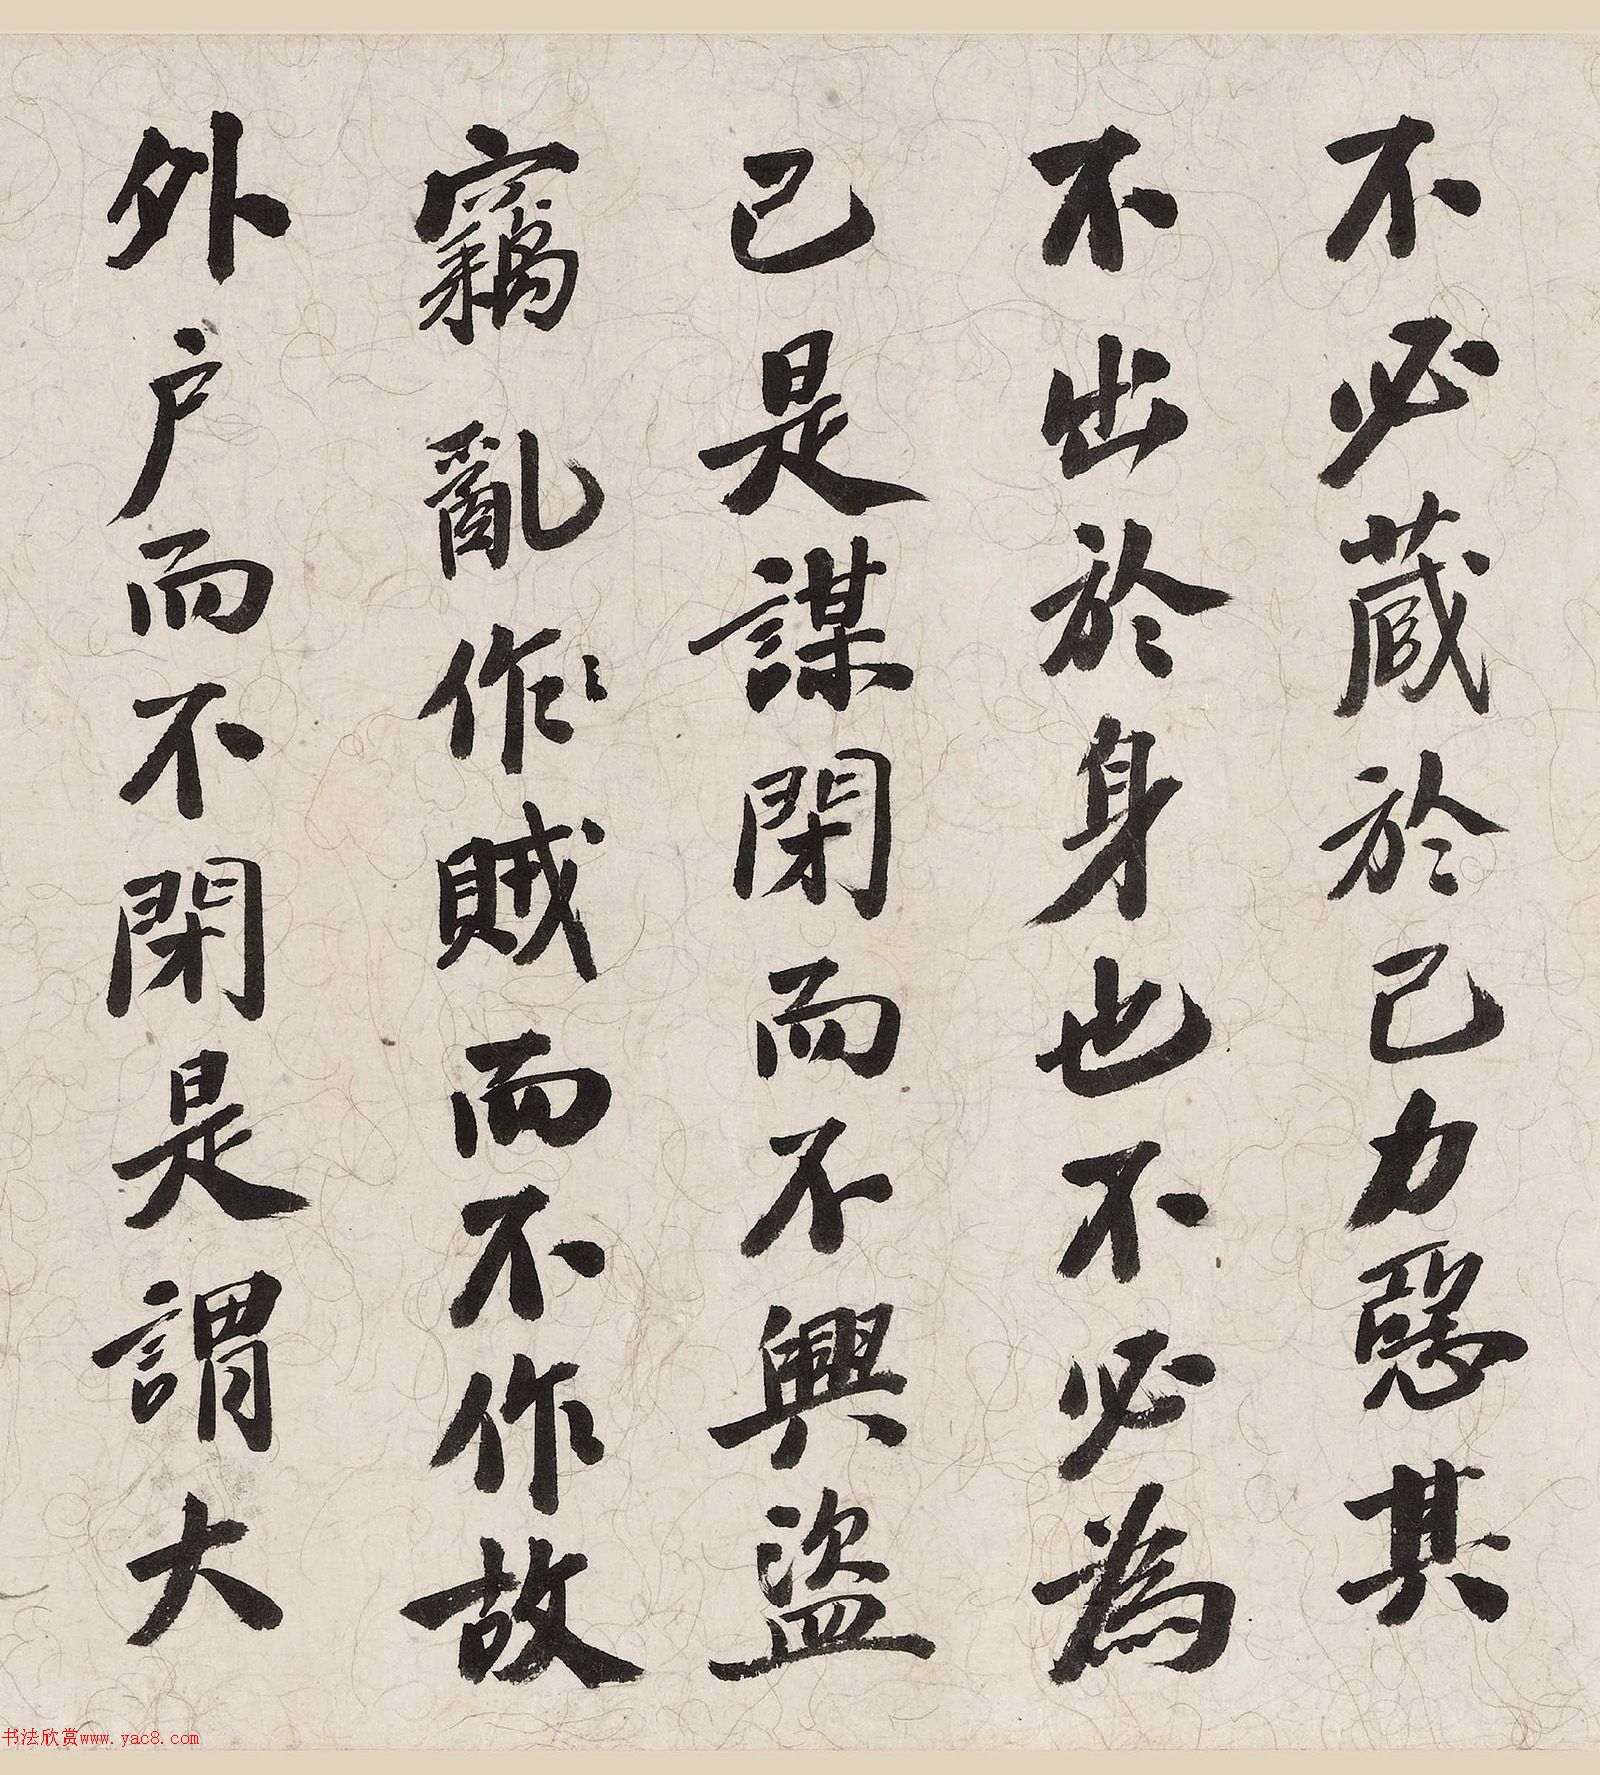 不必藏於己力惡其
不出於身也不必為
己是謀閉而不興盜
竊亂作賊而不作故
外户而不閉是謂大
书法欣赏www.yac8.com